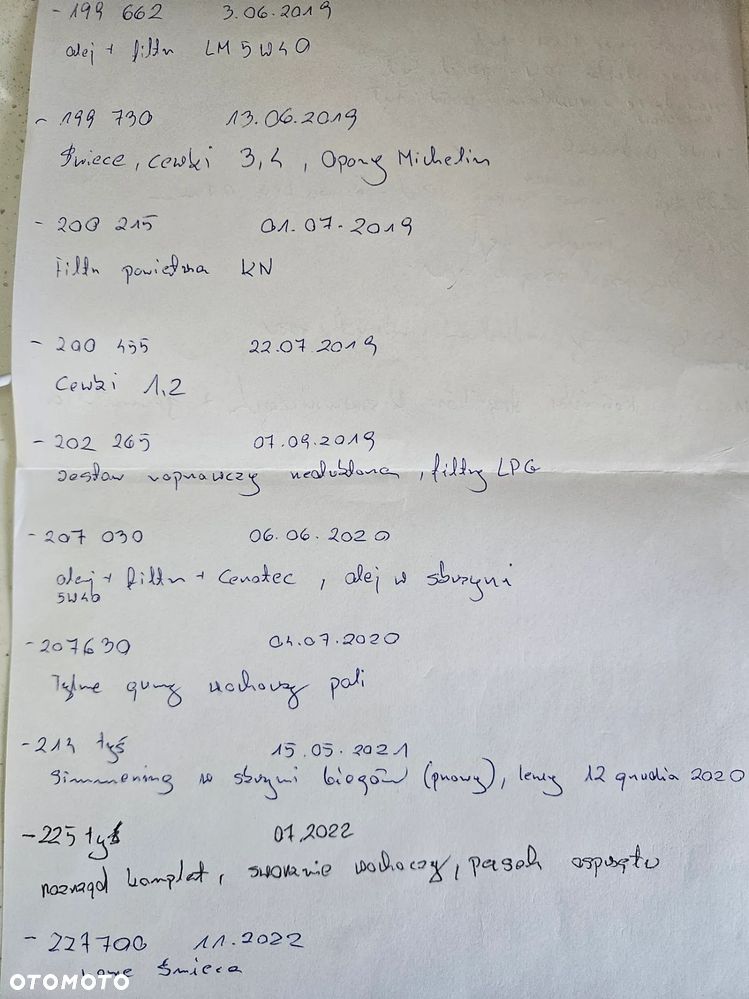 - 199 662 3.06.2019
olej + filtr LM 5W40
- 199 730 13.06.2019
Świece, cewki 3,4, Opony Michelin
- 200 215 01.07.2019
Filtr powietrza KN
- 200 455 22.07.2019
Cewki 1,2
- 202 265 07.09.2019
zestaw naprawczy reduktora, filtry LPG
- 207 030 06.06.2020
olej + filtr + Ceratec, olej w skrzyni
5W40
- 207630 04.07.2020
Tylne gumy wahaczy
- 214 tyś 15.05.2021
Simmering w skrzyni biegów (prawy), lewy 12 grudnia 2020
- 225 tyś 07.2022
rozrząd komplet, sworznie wahaczy, pasek osprzętu
- 227700 11.2022
Świeca
OTOMOTO